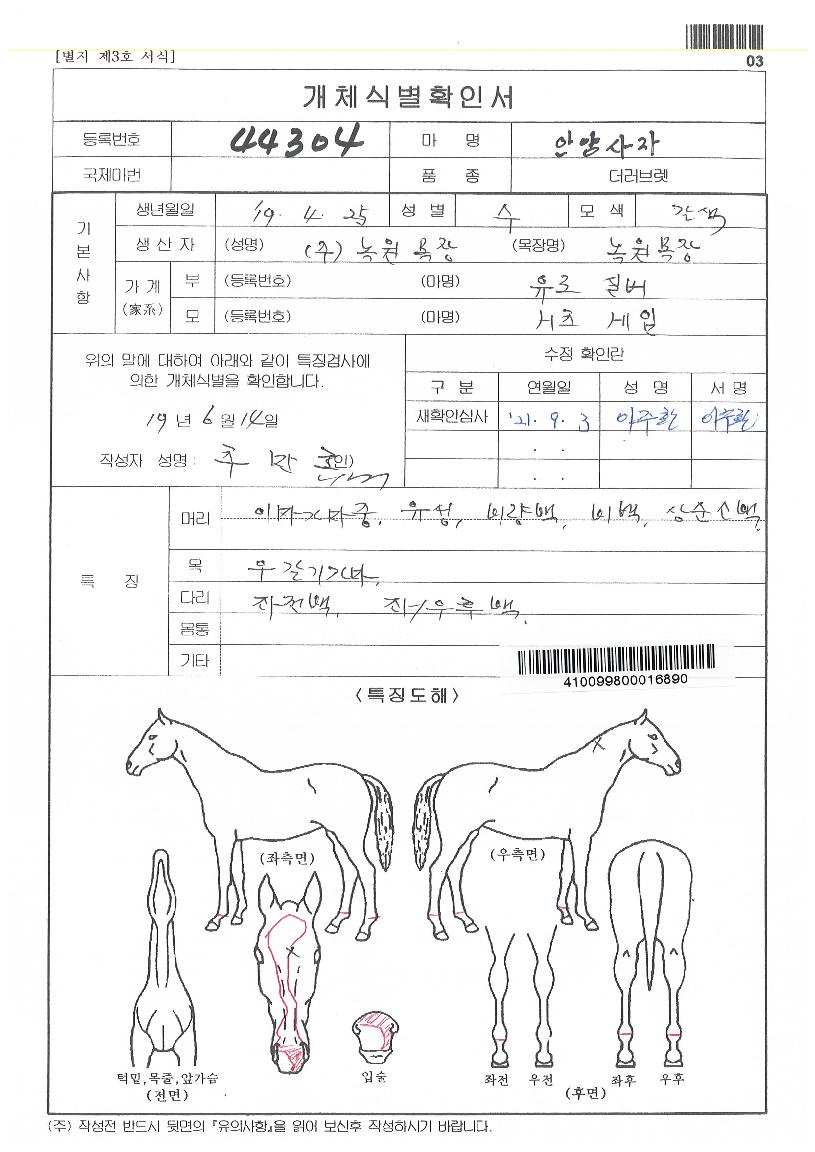 [별지 제3호 서식]
03
개체식별확인서
등록번호 44304 마 명 안양사자
국제마번 품 종 더러브렛
기본사항
생년월일 '19. 4. 25 성 별 수 모 색 갈색
생 산 자 (성명) (주) 녹원목장 (목장명) 녹원목장
가 계 (家系)
부 (등록번호) (마명) 유로 질버
모 (등록번호) (마명)
위의 말에 대하여 아래와 같이 특징검사에
의한 개체식별을 확인합니다.
19 년 6 월 14 일
작성자 성명 : (인)
수정 확인란
구 분 연월일 성 명 서 명
재확인심사 '21. 9. 3 이주환 이주환
. .
. .
특 징
머리 이마가마중, 유성, 비량백, 비백, 상순소백.
목 우갈기가마.
다리 좌전백, 좌/우후백.
몸통
기타
410099800016890
<특징도해>
(좌측면) (우측면)
턱밑,목줄,앞가슴
(전면)
입술
좌전 우전 좌후 우후
(후면)
(주) 작성전 반드시 뒷면의 『유의사항』을 읽어 보신후 작성하시기 바랍니다.